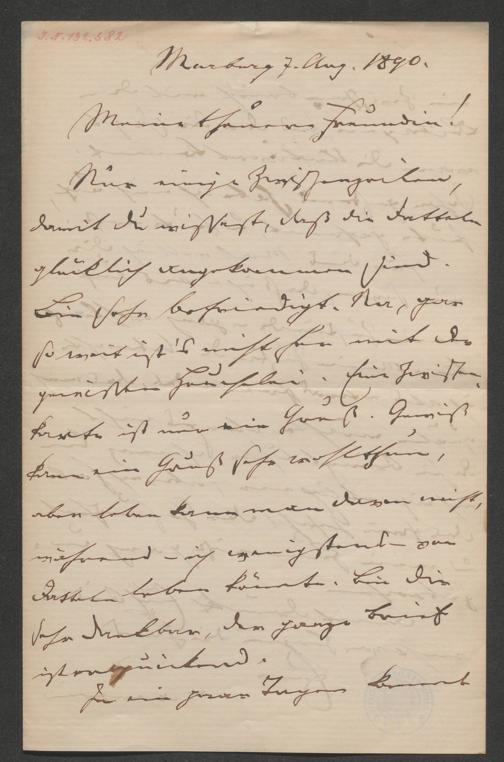 I.N. 132.582
Marburg 7. Aug. 1890.
Meine theuere Freundin!
Nur einige Zwischenzeilen,
damit du wissest, daß die Datteln
glücklich angekommen sind.
Bin sehr befriedigt. Na, gar
so weit ist's nicht her mit der
Eine Zwischen-
karte ist nur ein Gruß. Gewiß
kann ein Gruß sehr wohlthun,
aber leben kann man davon nicht,
während – ich wenigstens – von
Datteln leben könnte. Bin Dir
sehr dankbar, der ganze Brief
ist erquickend.
In ein paar Tagen kommt